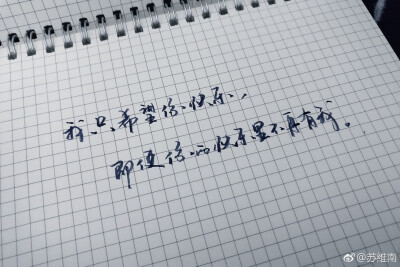 我只希望你快乐，
即使你的快乐里不再有我。
@苏维南